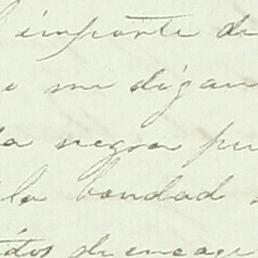 importe de
me digan
la negra
la bondad
de encaje